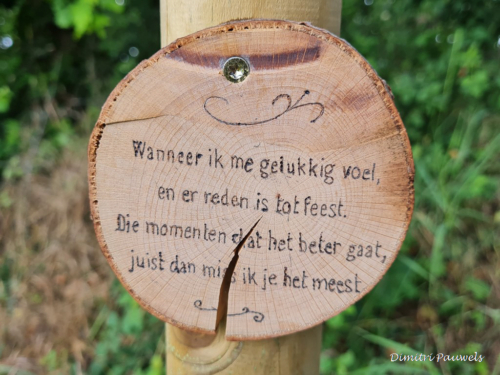 Wanneer ik me gelukkig voel,
en er reden is tot feest.
Die momenten dat het beter gaat,
juist dan mis ik je het meest
Dimitri Pauwels